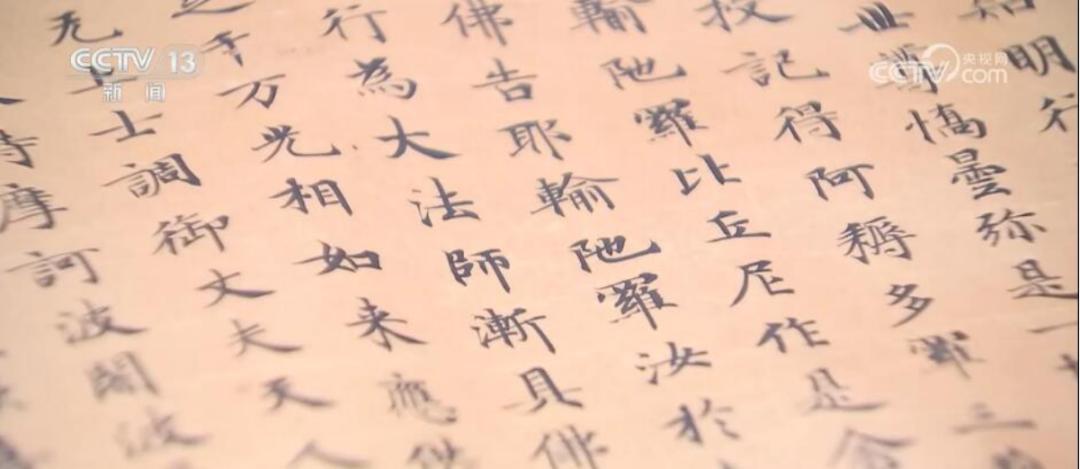 CCTV 13
新闻
CCTV 央视网
com
明行
世尊憍曇弥是一
授記得阿耨多羅三
輸陁羅比丘尼作是念
佛告耶輸陁羅汝於
行為大法師漸具佛
千万光相如来應供
无上士調御丈夫天人
摩訶波闍波